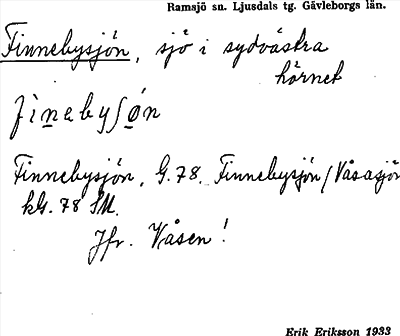 Ramsjö sn. Ljusdals tg. Gävleborgs län.
Finnebysjön, sjö i sydvästra
hörnet
fìnebysǿn
Finnebysjön, G.78. Finnebysjön/Våsasjön
kG. 78 SM.
Jfr. Våsen!
Erik Eriksson 1933